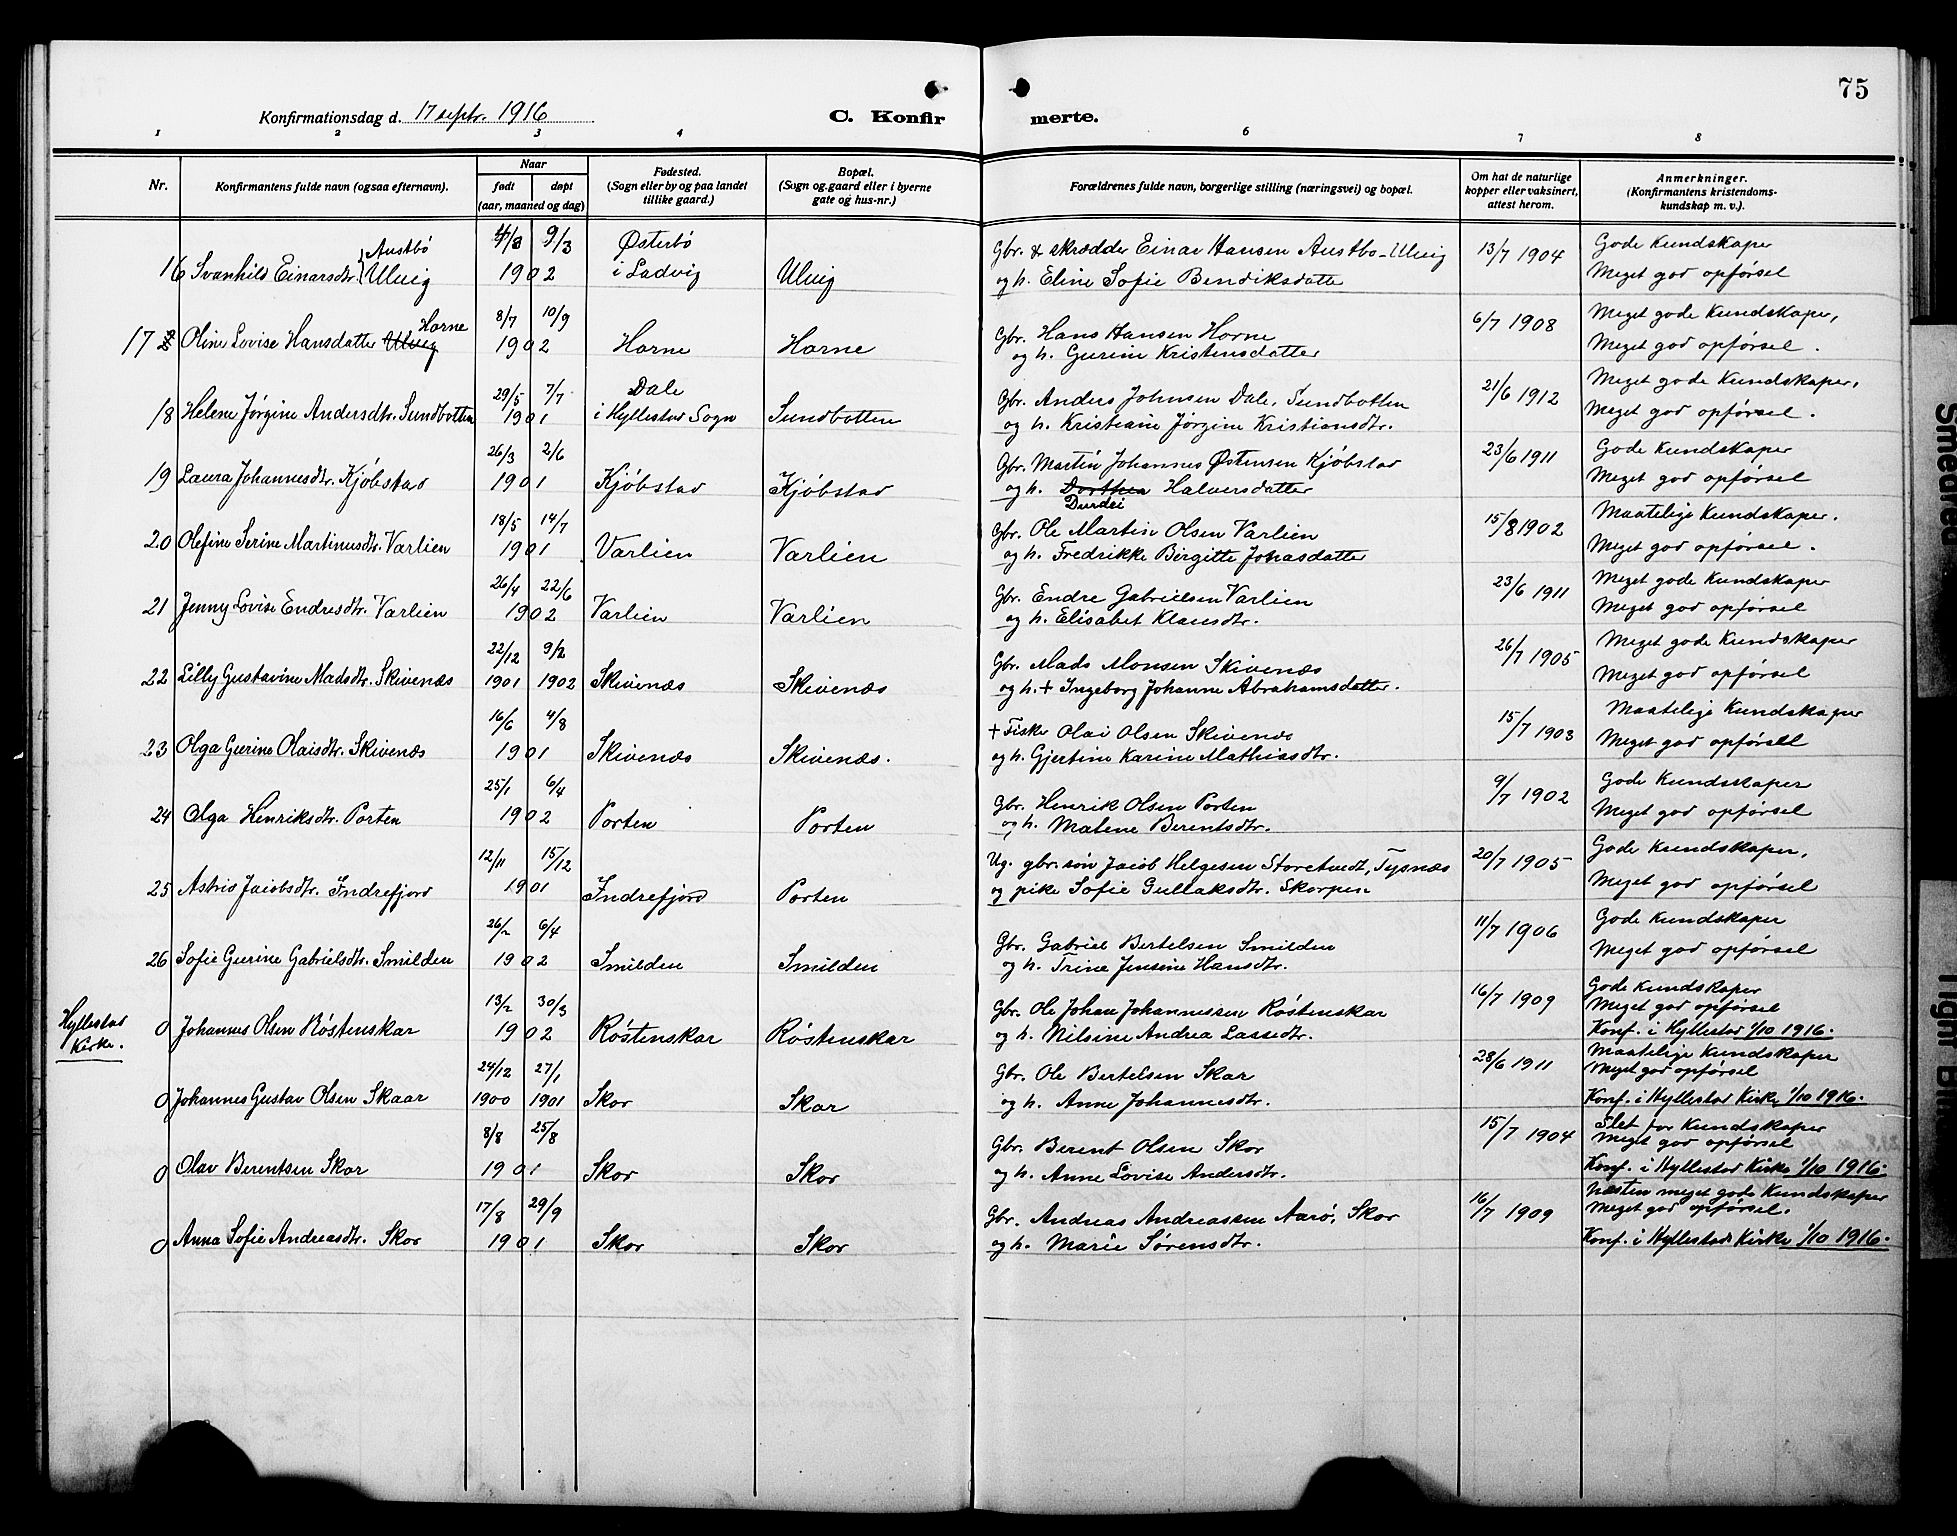 75
Konfirmationsdag d. 17 septr. 1916
C. Konfirmerte.
1 2 3 4 6 7 8
Nr.
Konfirmantens fulde navn (ogsaa efternavn).
Naar
født døpt
(aar, maaned og dag)
Fødested.
(Sogn eller by og paa landet
tillike gaard.)
Bopæl.
(Sogn og gaard eller i byerne
gate og hus-nr.)
Forældrenes fulde navn, borgerlige stilling (næringsvei) og bopæl.
Om hat de naturlige
kopper eller vaksinert,
attest herom.
Anmerkninger.
(Konfirmantens kristendoms-
kundskap m. v.).
Austbö 9/3 Østerbö Gbr. & skrædder Einar Hansen Austbö-Ulvig 13/7 1904 Gode Kundskaper
16 Svanhild Einarsdtr. Ulvig 1902 i Ladvig Ulvig og h. Eline Sofie Bendiksdatter Meget god opførsel
Horne 8/7 10/9 Gbr. Hans Hansen Horne 6/7 1908 Meget gode Kundskaper,
17 Oline Lovise Hansdatter Ulvig 1902 Horne Horne og h. Gurine Kristensdatter Meget god opførsel.
29/5 7/7 Dale Gbr. Anders Johnsen Dale, Sundbotten 21/6 1912 Meget gode Kundskaper,
18 Helene Jørgine Andersdtr. Sundbotten 1901 i Hyllestad Sogn Sundbotten og h. Kristiane Jørgine Kristiansdtr. Meget god opførsel.
26/3 2/6 Gbr. Martin Johannes Østensen Kjöbstad 23/6 1911 Gode Kundskaper
19 Laura Johannesdtr. Kjöbstad 1901 Kjöbstad Kjöbstad og h. Dorthea Halversdatter Meget god opførsel
Durdei
18/5 14/7 Gbr. Ole Martin Olsen Varlien 15/8 1902 Maatelige Kundskaper.
20 Olefine Serine Martinusdtr. Varlien 1901 Varlien Varlien og h. Fredrikke Birgitte Jonasdatter Meget god opførsel.
26/4 22/6 Gbr. Endre Gabrielsen Varlien 23/6 1911 Meget gode Kundskaper
21 Jenny Lovise Endresdtr. Varlien 1902 Varlien Varlien og h. Elisabet Klausdtr. Meget god opførsel
22/12 9/2 Gbr. Mads Monsen Skivenæs 26/7 1905 Meget gode Kundskaper
22 Lilly Gustavine Madsdtr. Skivenæs 1901 1902 Skivenæs Skivenæs og h. + Ingeborg Johanne Abrahamsdatter. Meget god opførsel
16/6 4/8 + Fisker Olai Olsen Skivenæs 15/7 1903 Maatelige Kundskaper
23 Olga Gurine Olaisdtr. Skivenæs 1901 Skivenæs Skivenæs. og h. Gjertine Karine Mathiasdtr. Meget god opførsel
25/1 6/4 Gbr. Henrik Olsen Porten 9/7 1902 Gode Kundskaper
24 Olga Henriksdtr. Porten 1902 Porten Porten og h. Malene Berentsdtr. Meget god opførsel
12/11 15/12 Ug. gbr. søn Jacob Helgesen Storetvedt, Tysnæs 20/7 1905 Gode Kundskaper,
25 Astrid Jacobsdtr. Indrefjord 1901 Indrefjord Porten og pike Sofie Gullaksdtr. Skorpen Meget god opførsel
26/2 6/4 Gbr. Gabriel Bertelsen Smilden 11/7 1906 Gode Kundskaper
26 Sofie Gurine Gabrielsdtr. Smilden 1902 Smilden Smilden og h. Trine Jensine Hansdtr. Meget god opførsel
Hyllestad
Kirke.
13/2 30/3 Gbr. Ole Johan Johannessen Röstenskar 16/7 1909 Gode Kundskaper
Meget god opførsel
0 Johannes Olsen Röstenskar 1902 Röstenskar Röstenskar og h. Nilsine Andrea Lassedtr. Konf. i Hyllestad 1/10 1916.
24/12 27/1 Gbr. Ole Bertelsen Skar 28/6 1911 Maatelige Kundskaper
Meget god opførsel
0 Johannes Gustav Olsen Skaar 1900 1901 Skor Skar og h. Anne Johannesdtr. Konf. i Hyllestad Kirke 1/10 1916.
8/8 25/8 Gbr. Berent Olsen Skor 15/7 1904 Slet for Kundskaper
Meget god opførsel
0 Olav Berentsen Skar 1901 Skor Skor og h. Anne Lovise Andersdtr. Konf. i Hyllestad Kirke 1/10 1916.
17/8 29/9 Gbr. Andreas Andreassen Aarö, Skor 16/7 1909 Næsten meget gode Kundskaper
Meget god opførsel.
0 Anna Sofie Andreasdtr. Skor 1901 Skor Skor og h. Marie Sørensdtr. Konf. i Hyllestad Kirke 1/10 1916.